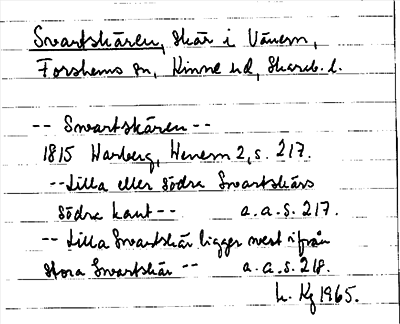 Svartskären, skär i Vänern,
Forshems sn, Kinne hd, Skarab. l.
-- Svartskären --
1815 Warberg, Wenern 2, s. 217.
-- Lilla eller Södra Svartskärs
södra kant -- a.a.s. 217.
-- Lilla Svartskär ligger mest ifrån
Stora Svartskär -- a.a.s. 218.
L. Kg 1965.